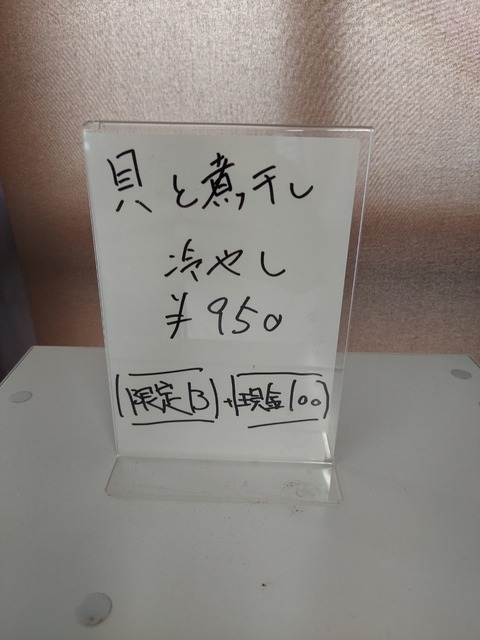 貝と煮干し
冷やし
¥950
(限定B)+現金100)